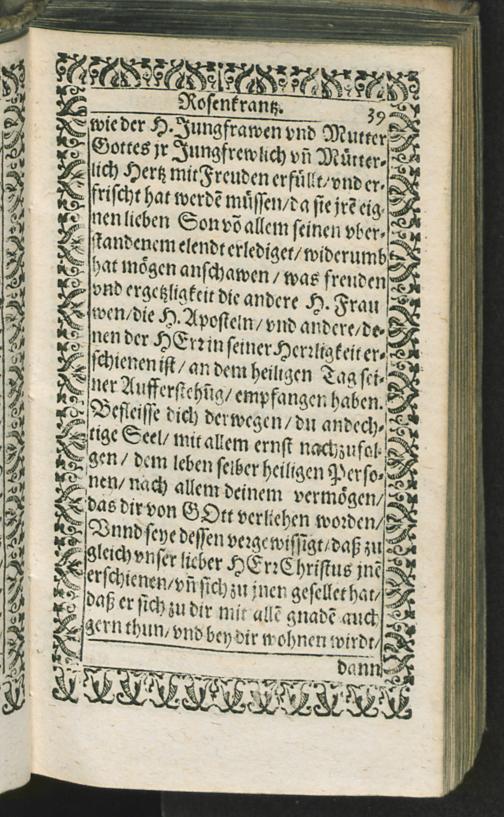 Rosenkrantz.
39
wie der H. Jungfrawen vnd Mutter
Gottes jr Jungfrewlich vn̄ Mütter-
lich Hertz mit Freuden erfüllt/ vnd er-
frischt hat werdē müssen/ da sie jrē eig-
nen lieben Son vō allem seinen vber-
standenem elendt erlediget/ widerumb
hat mögen anschawen / was freuden
vnd ergetzligkeit die andere H. Frau
wen/ die H. Aposteln/ vnd andere/ de-
nen der HErr in seiner Herrligkeit er-
schienen ist / an dem heiligen Tag sei-
ner Aufferstehūg/ empfangen haben.
Befleisse dich derwegen/ du andech-
tige Seel/ mit allem ernst nachzufol-
gen / dem leben selber heiligen Perso-
nen/ nach allem deinem vermögen/
das dir von GOtt verliehen worden/
Vnnd seye dessen vergewissigt/ daß zu
gleich vnser lieber HErr Christus jnē
erschienen/ vn̄ sich zu jnen gesellet hat/
daß er sich zu dir mit allē gnadē auch
gern thun/ vnd bey dir wohnen wirdt/
dann